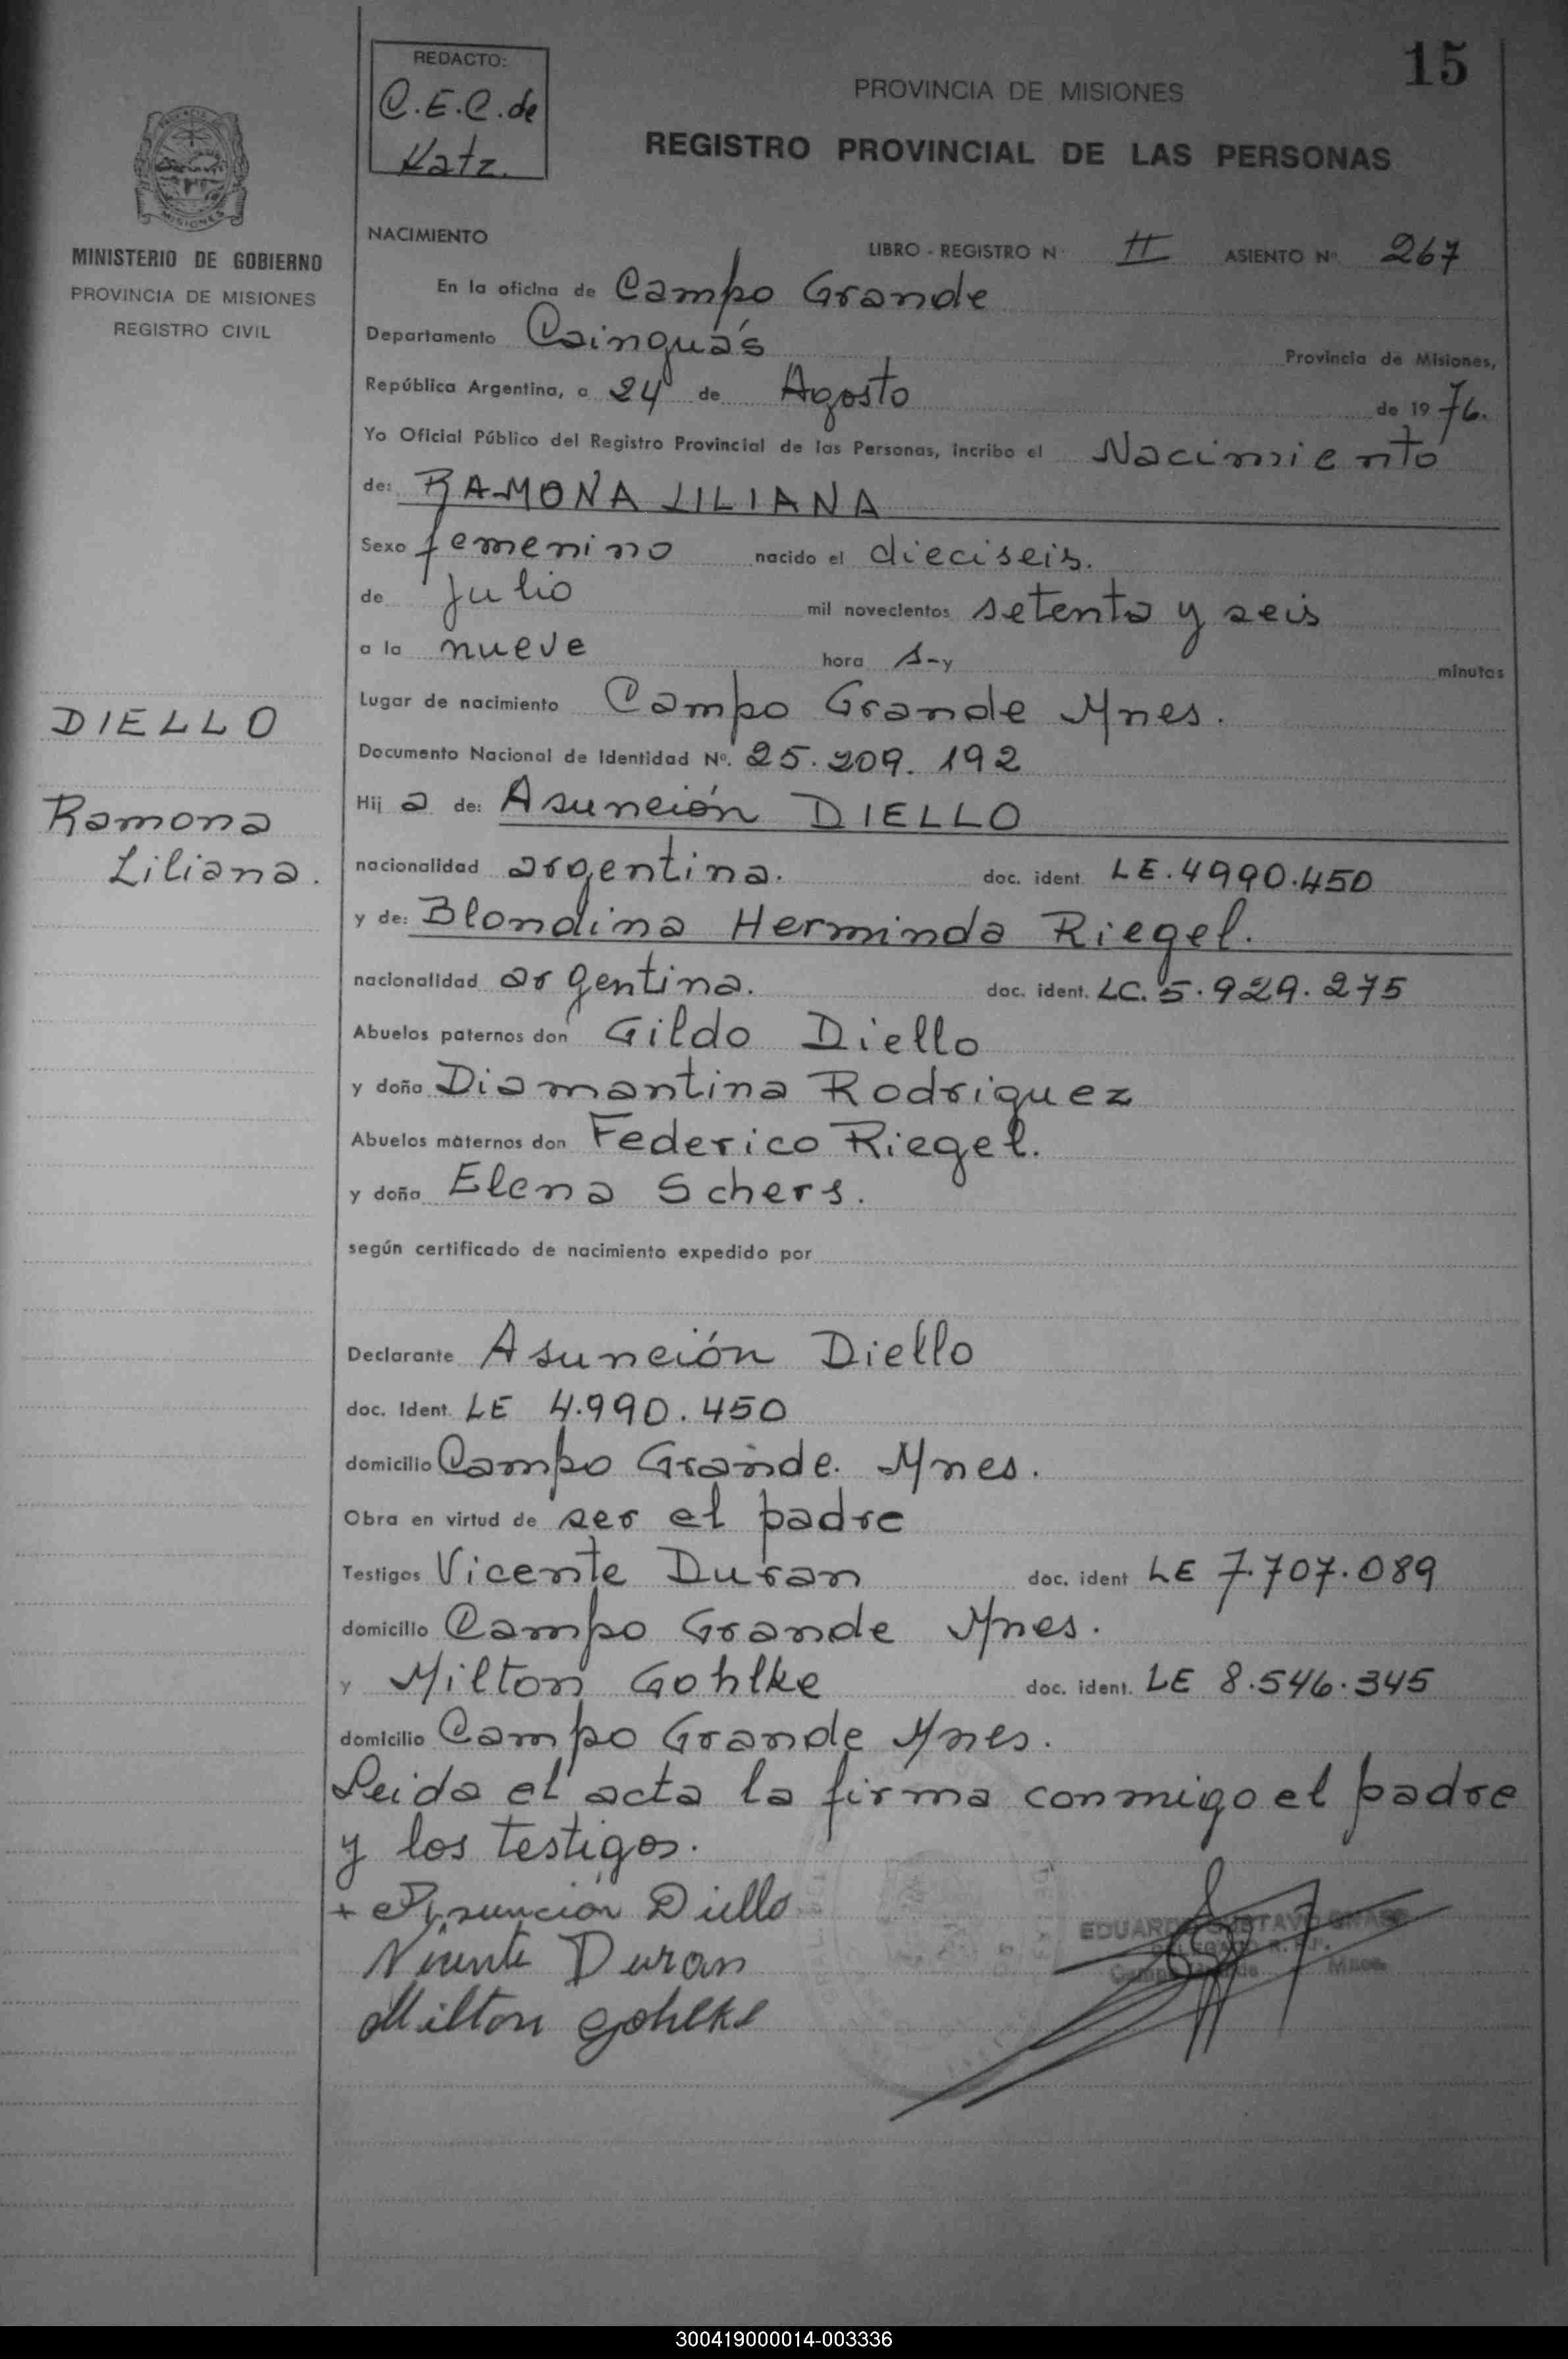 15
REDACTO:
C.E.C. de
Katz.
PROVINCIA DE MISIONES
REGISTRO PROVINCIAL DE LAS PERSONAS
MISIONES
MINISTERIO DE GOBIERNO
PROVINCIA DE MISIONES
REGISTRO CIVIL
NACIMIENTO
LIBRO - REGISTRO N° II ASIENTO N° 267
En la oficina de Campo Grande
Departamento Cainguás Provincia de Misiones,
República Argentina, a 24 de Agosto de 19 76.
Yo Oficial Público del Registro Provincial de las Personas, incribo el Nacimiento
de: RAMONA LILIANA
Sexo femenino nacido el dieciseis.
de Julio mil novecientos setenta y seis
a la nueve hora s-y minutos
Lugar de nacimiento Campo Grande Mnes.
Documento Nacional de Identidad N°. 25.209.192
Hij a de: Asunción DIELLO
nacionalidad argentina. doc. ident. LE.4990.450
y de: Blondina Herminda Riegel.
nacionalidad argentina. doc. ident. LC.5.929.275
Abuelos paternos don Gildo Diello
y doña Diamantina Rodriguez
Abuelos maternos don Federico Riegel.
y doña Elena Schers.
según certificado de nacimiento expedido por
Declarante Asunción Diello
doc. Ident. LE 4.990.450
domicilio Campo Grande. Mnes.
Obra en virtud de ser el padre
Testigos Vicente Duran doc. ident LE 7.707.089
domicilio Campo Grande Mnes.
y Milton Gohlke doc. ident. LE 8.546.345
domicilio Campo Grande Mnes.
Leida el acta la firma conmigo el padre
y los testigos.
+ Asuncion Diello
Vicente Duran
Milton Gohlke
DIELLO
Ramona
Liliana.
EDUARDO GUSTAVO
300419000014-003336